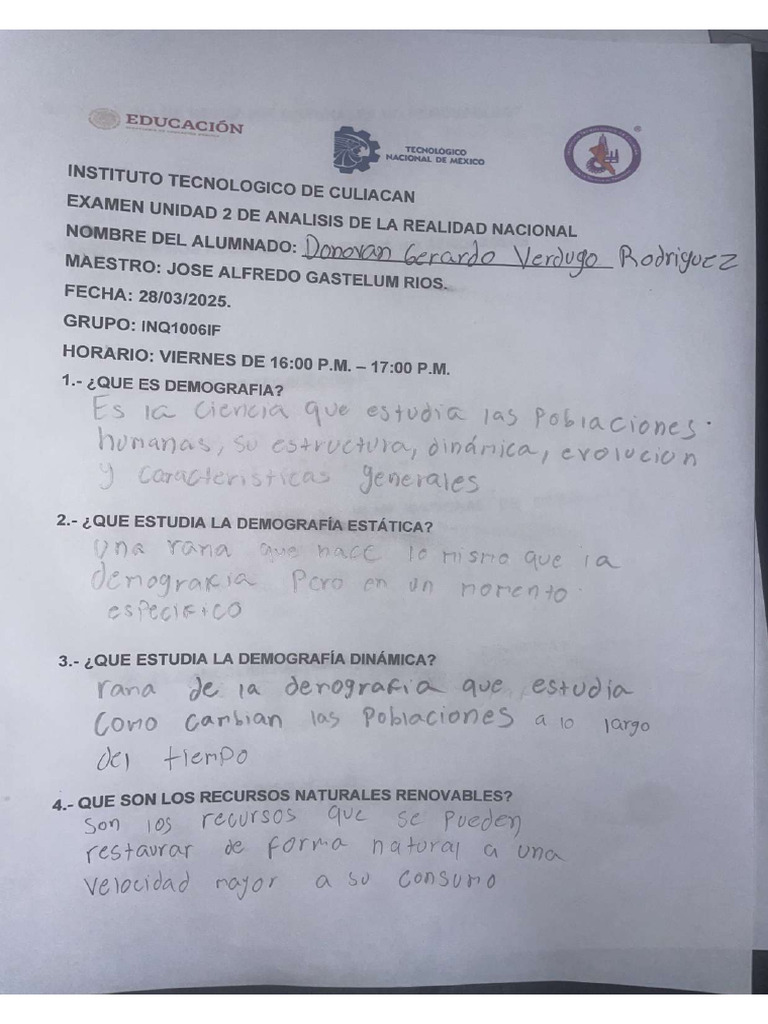 EDUCACIÓN
TECNOLÓGICO
NACIONAL DE MÉXICO
®
INSTITUTO TECNOLOGICO DE CULIACAN
EXAMEN UNIDAD 2 DE ANALISIS DE LA REALIDAD NACIONAL
NOMBRE DEL ALUMNADO: Donovan Gerardo Verdugo Rodriguez
MAESTRO: JOSE ALFREDO GASTELUM RIOS.
FECHA: 28/03/2025.
GRUPO: INQ1006IF
HORARIO: VIERNES DE 16:00 P.M. – 17:00 P.M.
1.- ¿QUE ES DEMOGRAFIA?
Es la ciencia que estudia las Poblaciones
humanas, su estructura, dinámica, evolucion
y caracteristicas generales
2.- ¿QUE ESTUDIA LA DEMOGRAFÍA ESTÁTICA?
Una rama que hace lo mismo que la
demografia Pero en un momento
especifico
3.- ¿QUE ESTUDIA LA DEMOGRAFÍA DINÁMICA?
rama de la demografia que estudia
Como cambian las Poblaciones a lo largo
del tiempo
4.- QUE SON LOS RECURSOS NATURALES RENOVABLES?
Son los recursos que se pueden
restaurar de forma natural a una
velocidad mayor a su consumo